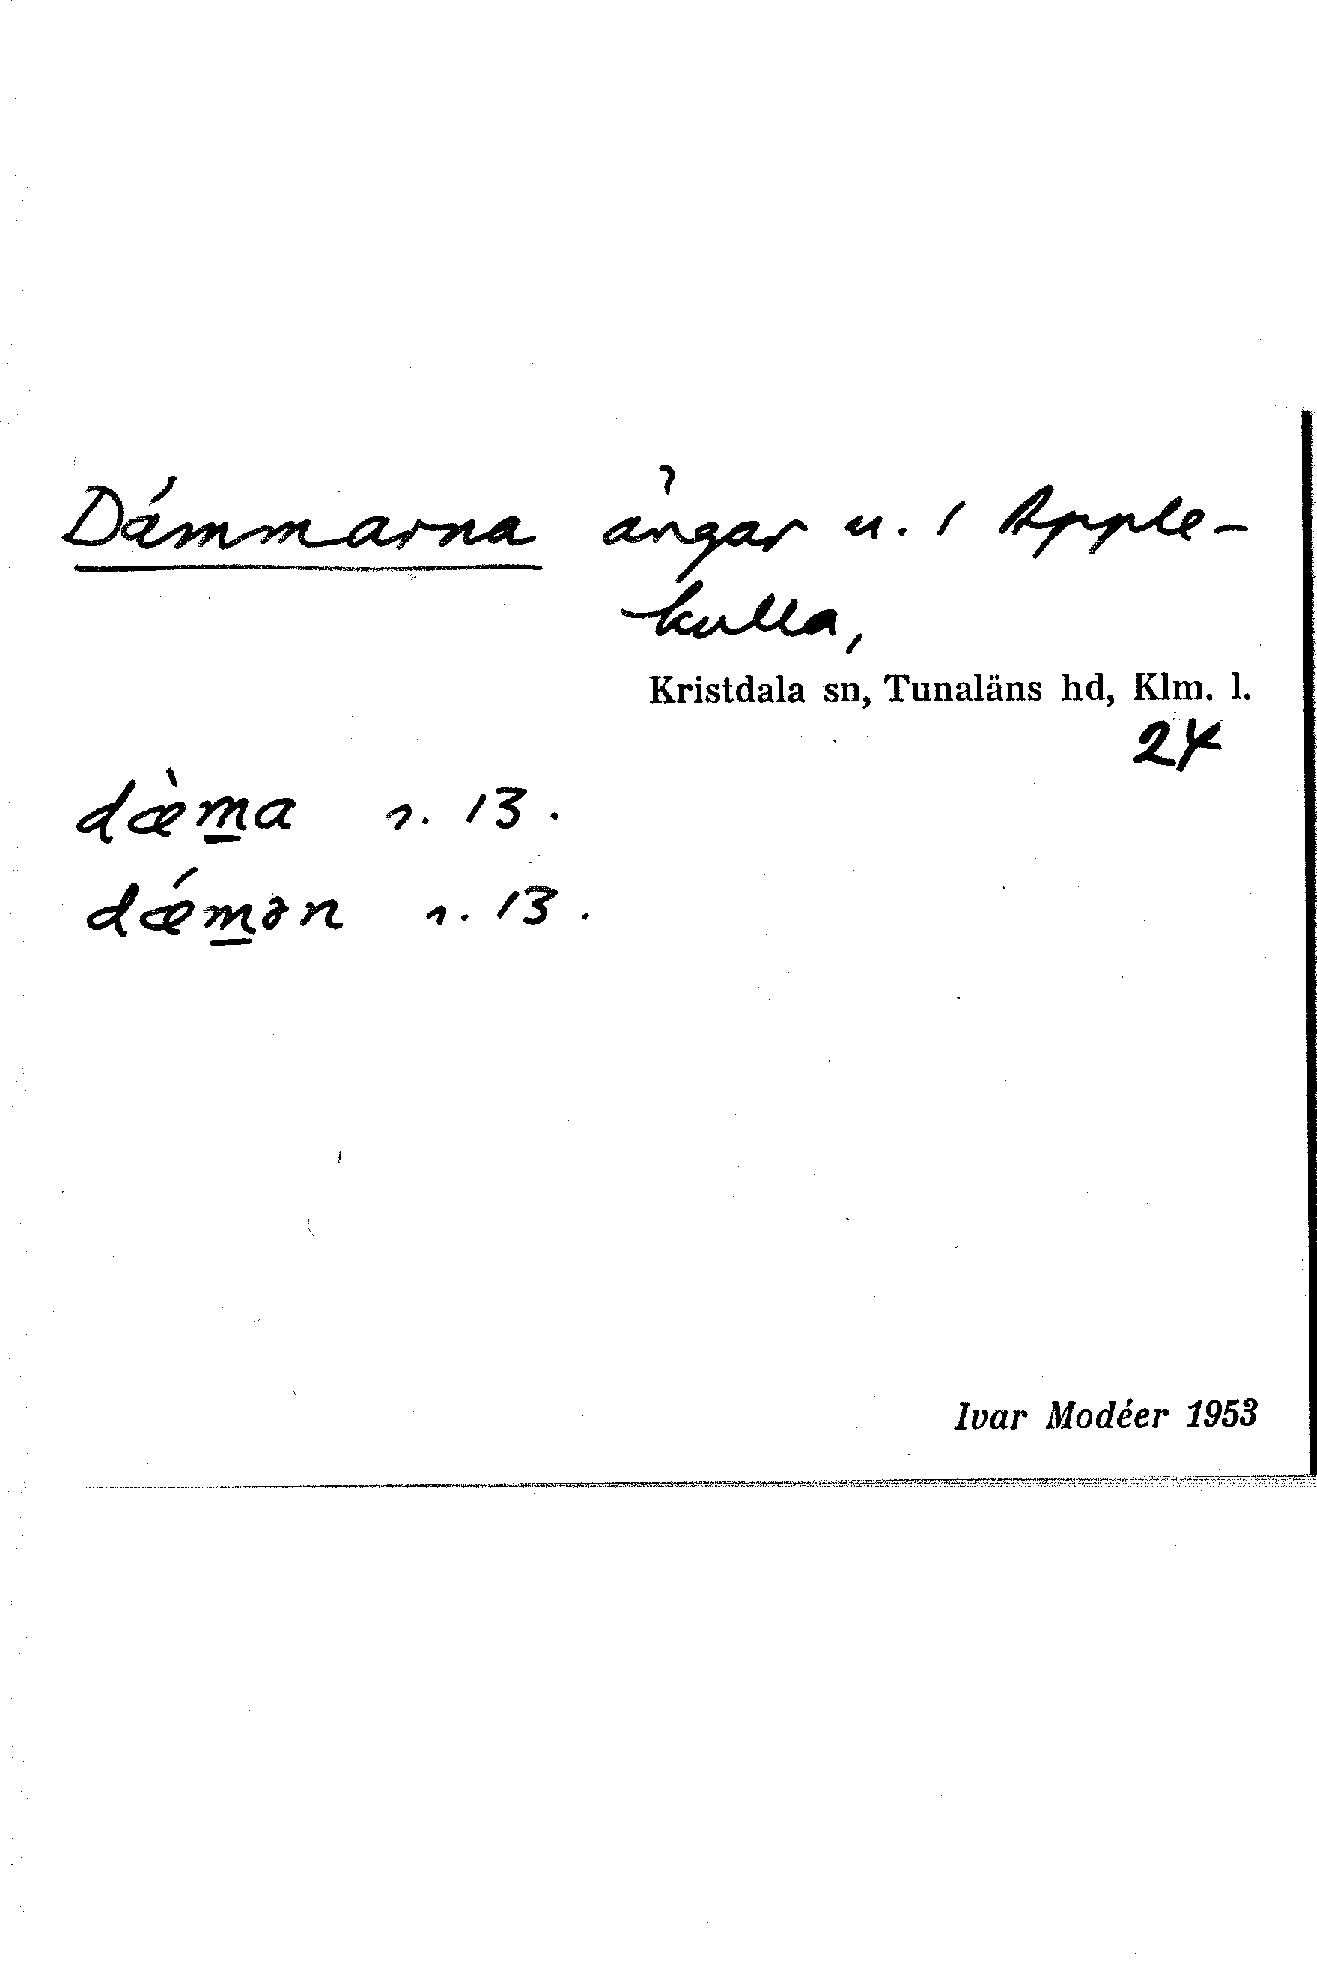 Dämmarna ängar u. 1 Apple-
kulla,
Kristdala sn, Tunaläns hd, Klm. l.
24
dæ̀m̲a r. 13.
dǽm̲ən r. 13.
Ivar Modéer 1953